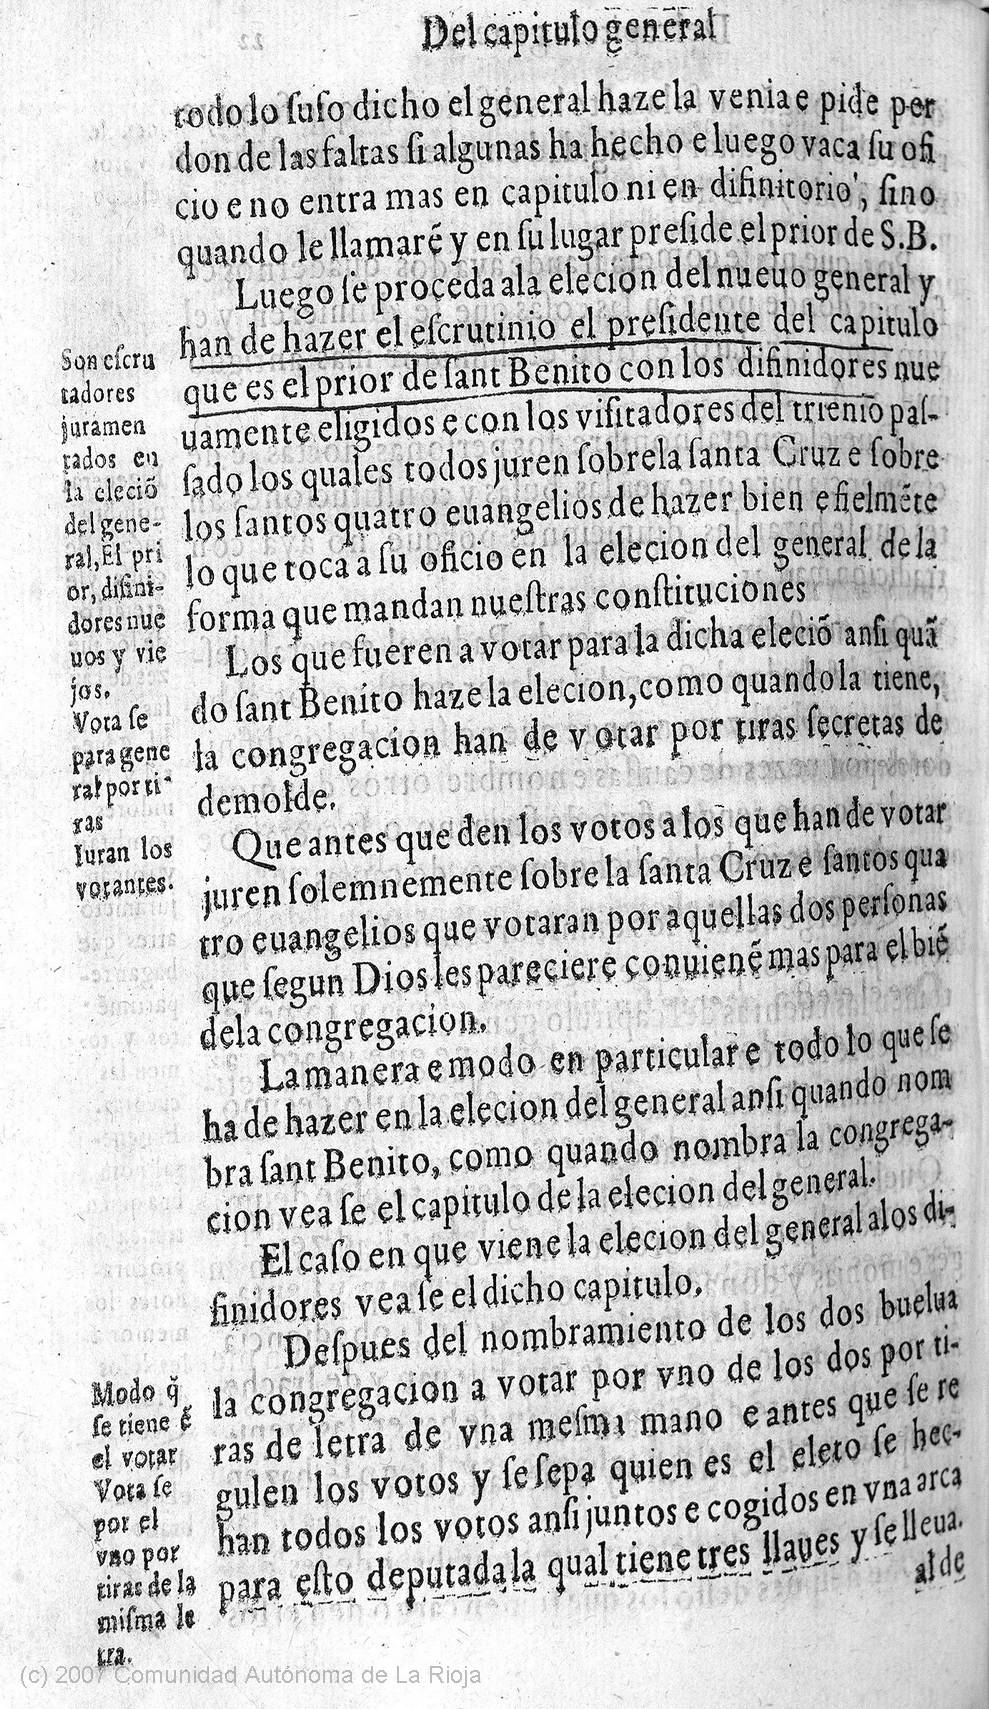 Del capitulo general
todo lo ſuſo dicho el general haze la venia e pide per
don de las faltas ſi algunas ha hecho e luego vaca ſu ofi
cio e no entra mas en capitulo ni en difinitorio, ſino
quando le llamarẽ y en ſu lugar preſide el prior de S.B.
Luego ſe proceda ala elecion del nueuo general y
han de hazer el eſcrutinio el preſidente del capitulo
que es el prior de ſant Benito con los difinidores nue
uamente eligidos e con los viſitadores del trienio paſ-
ſado los quales todos juren ſobre la ſanta Cruz e ſobre
los ſantos quatro euangelios de hazer bien e fielmẽte
lo que toca a ſu oficio en la elecion del general de la
forma que mandan nueſtras conſtituciones
Los que fueren a votar para la dicha eleciõ anſi quã
do ſant Benito haze la elecion, como quando la tiene,
la congregacion han de votar por tiras ſecretas de
demolde.
Que antes que den los votos a los que han de votar
juren ſolemnemente ſobre la ſanta Cruz e ſantos qua
tro euangelios que votaran por aquellas dos perſonas
que ſegun Dios les pareciere conuienẽ mas para el biẽ
dela congregacion.
La manera e modo en particular e todo lo que ſe
ha de hazer en la elecion del general anſi quando nom
bra ſant Benito, como quando nombra la congrega-
cion vea ſe el capitulo de la elecion del general.
El caſo en que viene la elecion del general alos di-
finidores vea ſe el dicho capitulo.
Deſpues del nombramiento de los dos buelua
la congregacion a votar por vno de los dos por ti-
ras de letra de vna meſma mano e antes que ſe re
gulen los votos y ſe ſepa quien es el eleto ſe hec-
han todos los votos anſi juntos e cogidos en vna arca
para eſto deputada la qual tiene tres llaues y ſe lleua.
al de
Son eſcru
tadores
juramen
tados en
la eleciõ
del gene-
ral, El pri
or, difini-
dores nue
uos y vie
jos.
Vota ſe
para gene
ral por ti
ras
Iuran los
votantes.
Modo q̃
ſe tiene ẽ
el votar
Vota ſe
por el
vno por
tiras de la
miſma le
tra.
(c) 2007 Comunidad Autónoma de La Rioja